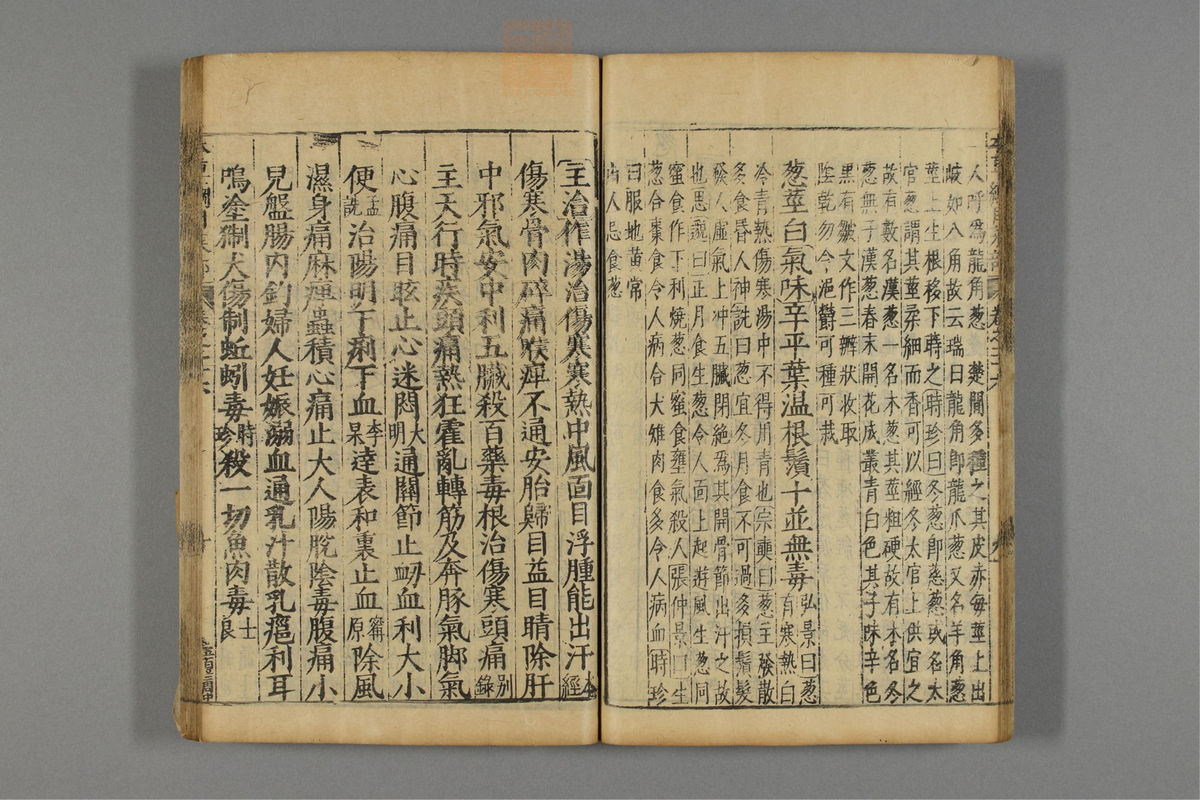 人呼爲龍角葱 楚間多種之其皮赤每莖上出
岐如八角故云瑞曰龍角即龍爪葱又名羊角葱
莖上生根移下蒔之時珍曰冬葱即慈葱或名太
官葱謂其莖柔細而香可以經冬太官上供宜之
故有數名漢葱一名木葱其莖粗硬故有木名冬
葱無子漢葱春末開花成叢青白色其子味辛色
黑有皺文作三瓣狀收取
陰乾勿令浥鬱可種可栽
葱莖白氣味辛平葉温根鬚十並無毒弘景曰葱有寒熱白
冷青熱傷寒湯中不得用青也宗奭曰葱主發散
多食昏人神詵曰葱宜冬月食不可過多損鬚髮
發人虛氣上冲五臟閉絶爲其開骨節出汗之故
也思邈曰正月食生葱令人面上起游風生葱同
蜜食作下利燒葱同蜜食壅氣殺人張仲景曰生
葱合棗食令人病合犬雉肉食多令人病血時珍
曰服地黄常
山人忌食葱
主治作湯治傷寒寒熱中風面目浮腫能出汗本經
傷寒骨肉碎痛喉痺不通安胎歸目益目睛除肝
中邪氣安中利五臟殺百藥毒根治傷寒頭痛别錄
主天行時疾頭痛熱狂霍亂轉筋及奔豚氣脚氣
心腹痛目眩止心迷悶大明通關節止衂血利大小
便孟詵治陽明下痢下血李杲達表和裏止血甯原除風
濕身痛麻痺蟲積心痛止大人陽脱陰毒腹痛小
兒盤腸内釣婦人妊娠溺血通乳汁散乳癰利耳
鳴塗猘犬傷制蚯蚓毒時珍殺一切魚肉毒士良